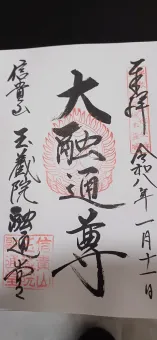 奉拝 令和八年一月十一日
大融通尊
信貴山 玉蔵院融通堂